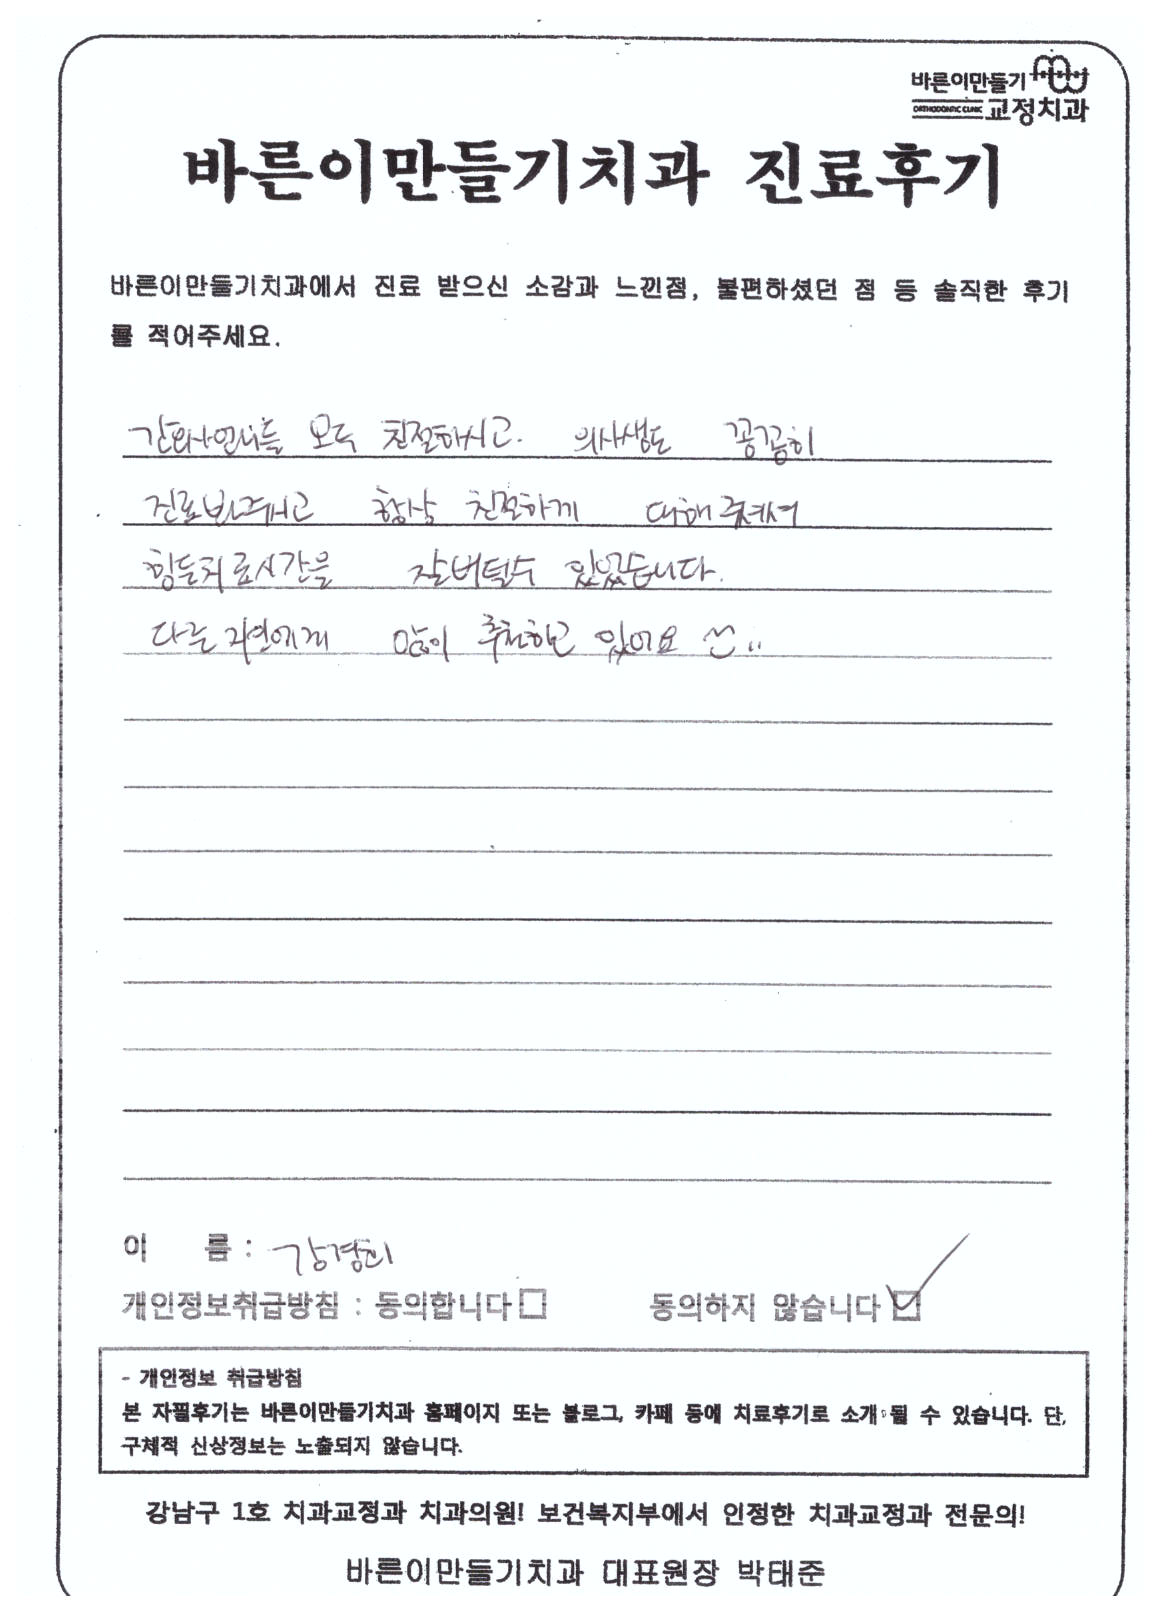 바른이만들기
ORTHODONTIC CLINIC 교정치과
바른이만들기치과 진료후기
바른이만들기치과에서 진료 받으신 소감과 느낀점, 불편하셨던 점 등 솔직한 후기
를 적어주세요.
간호사언니들 모두 친절하시고. 의사샘도 꼼꼼히
진료봐주시고 항상 친절하게 대해주셔서
힘든치료시간을 잘버틸수 있었습니다.
다른 지인에게 많이 추천하고 있어요
이 름 : 강경희
개인정보취급방침 : 동의합니다 동의하지 않습니다
- 개인정보 취급방침
본 자필후기는 바른이만들기치과 홈페이지 또는 블로그, 카페 등에 치료후기로 소개 될 수 있습니다. 단,
구체적 신상정보는 노출되지 않습니다.
강남구 1호 치과교정과 치과의원! 보건복지부에서 인정한 치과교정과 전문의!
바른이만들기치과 대표원장 박태준